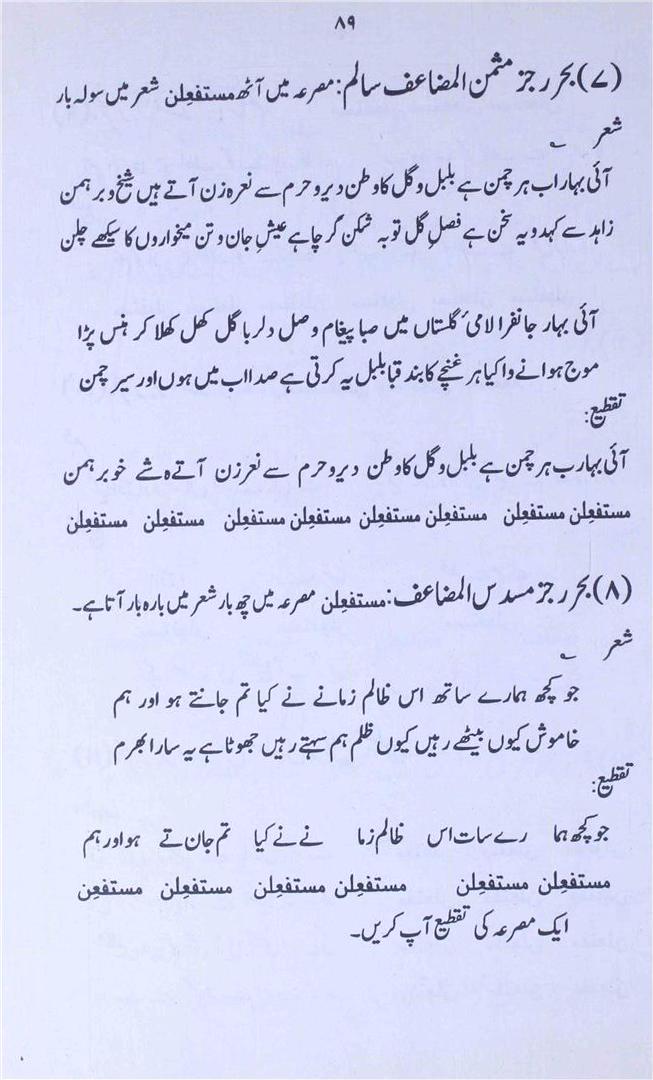 ۸۹
(۷) بحر رجز مثمن المضاعف سالم: مصرعہ میں آٹھ مستفعِلن شعر میں سولہ بار
شعر
آئی بہار اب ہر چمن ہے بلبل و گل کا وطن دیر و حرم سے نعرہ زن آتے ہیں شیخ و برہمن
زاہد سے کہدو یہ سخن ہے فصلِ گل توبہ شکن گر چاہے عیشِ جان و تن میخواروں کا سیکھے چلن
آئی بہار جانفزا لامی گلستاں میں صبا پیغام وصل دلربا گل کھل کھلا کر ہنس پڑا
موج ہوا نے وا کیا ہر غنچے کا بند قبا بلبل یہ کرتی ہے صدا اب میں ہوں اور سیر چمن
تقطیع:
آئی بہارب ہر چمن ہے بلبل و گل کا وطن دیر و حرم سے نعرزن آتے ہ شے خو برہمن
مستفعِلن مستفعِلن مستفعِلن مستفعِلن مستفعِلن مستفعِلن مستفعِلن مستفعِلن
(۸) بحر رجز مسدس المضاعف: مستفعِلن مصرعہ میں چھ بار شعر میں بارہ بار آتا ہے۔
شعر
جو کچھ ہمارے ساتھ اس ظالم زمانے نے کیا تم جانتے ہو اور ہم
خاموش کیوں بیٹھے رہیں کیوں ظلم ہم سہتے رہیں جھوٹا ہے یہ سارا بھرم
تقطیع:
جو کچھ ہما رے سات اس ظالم زما نے نے کیا تم جان تے ہو اور ہم
مستفعِلن مستفعِلن مستفعِلن مستفعِلن مستفعِلن مستفعِن
ایک مصرعہ کی تقطیع آپ کریں۔